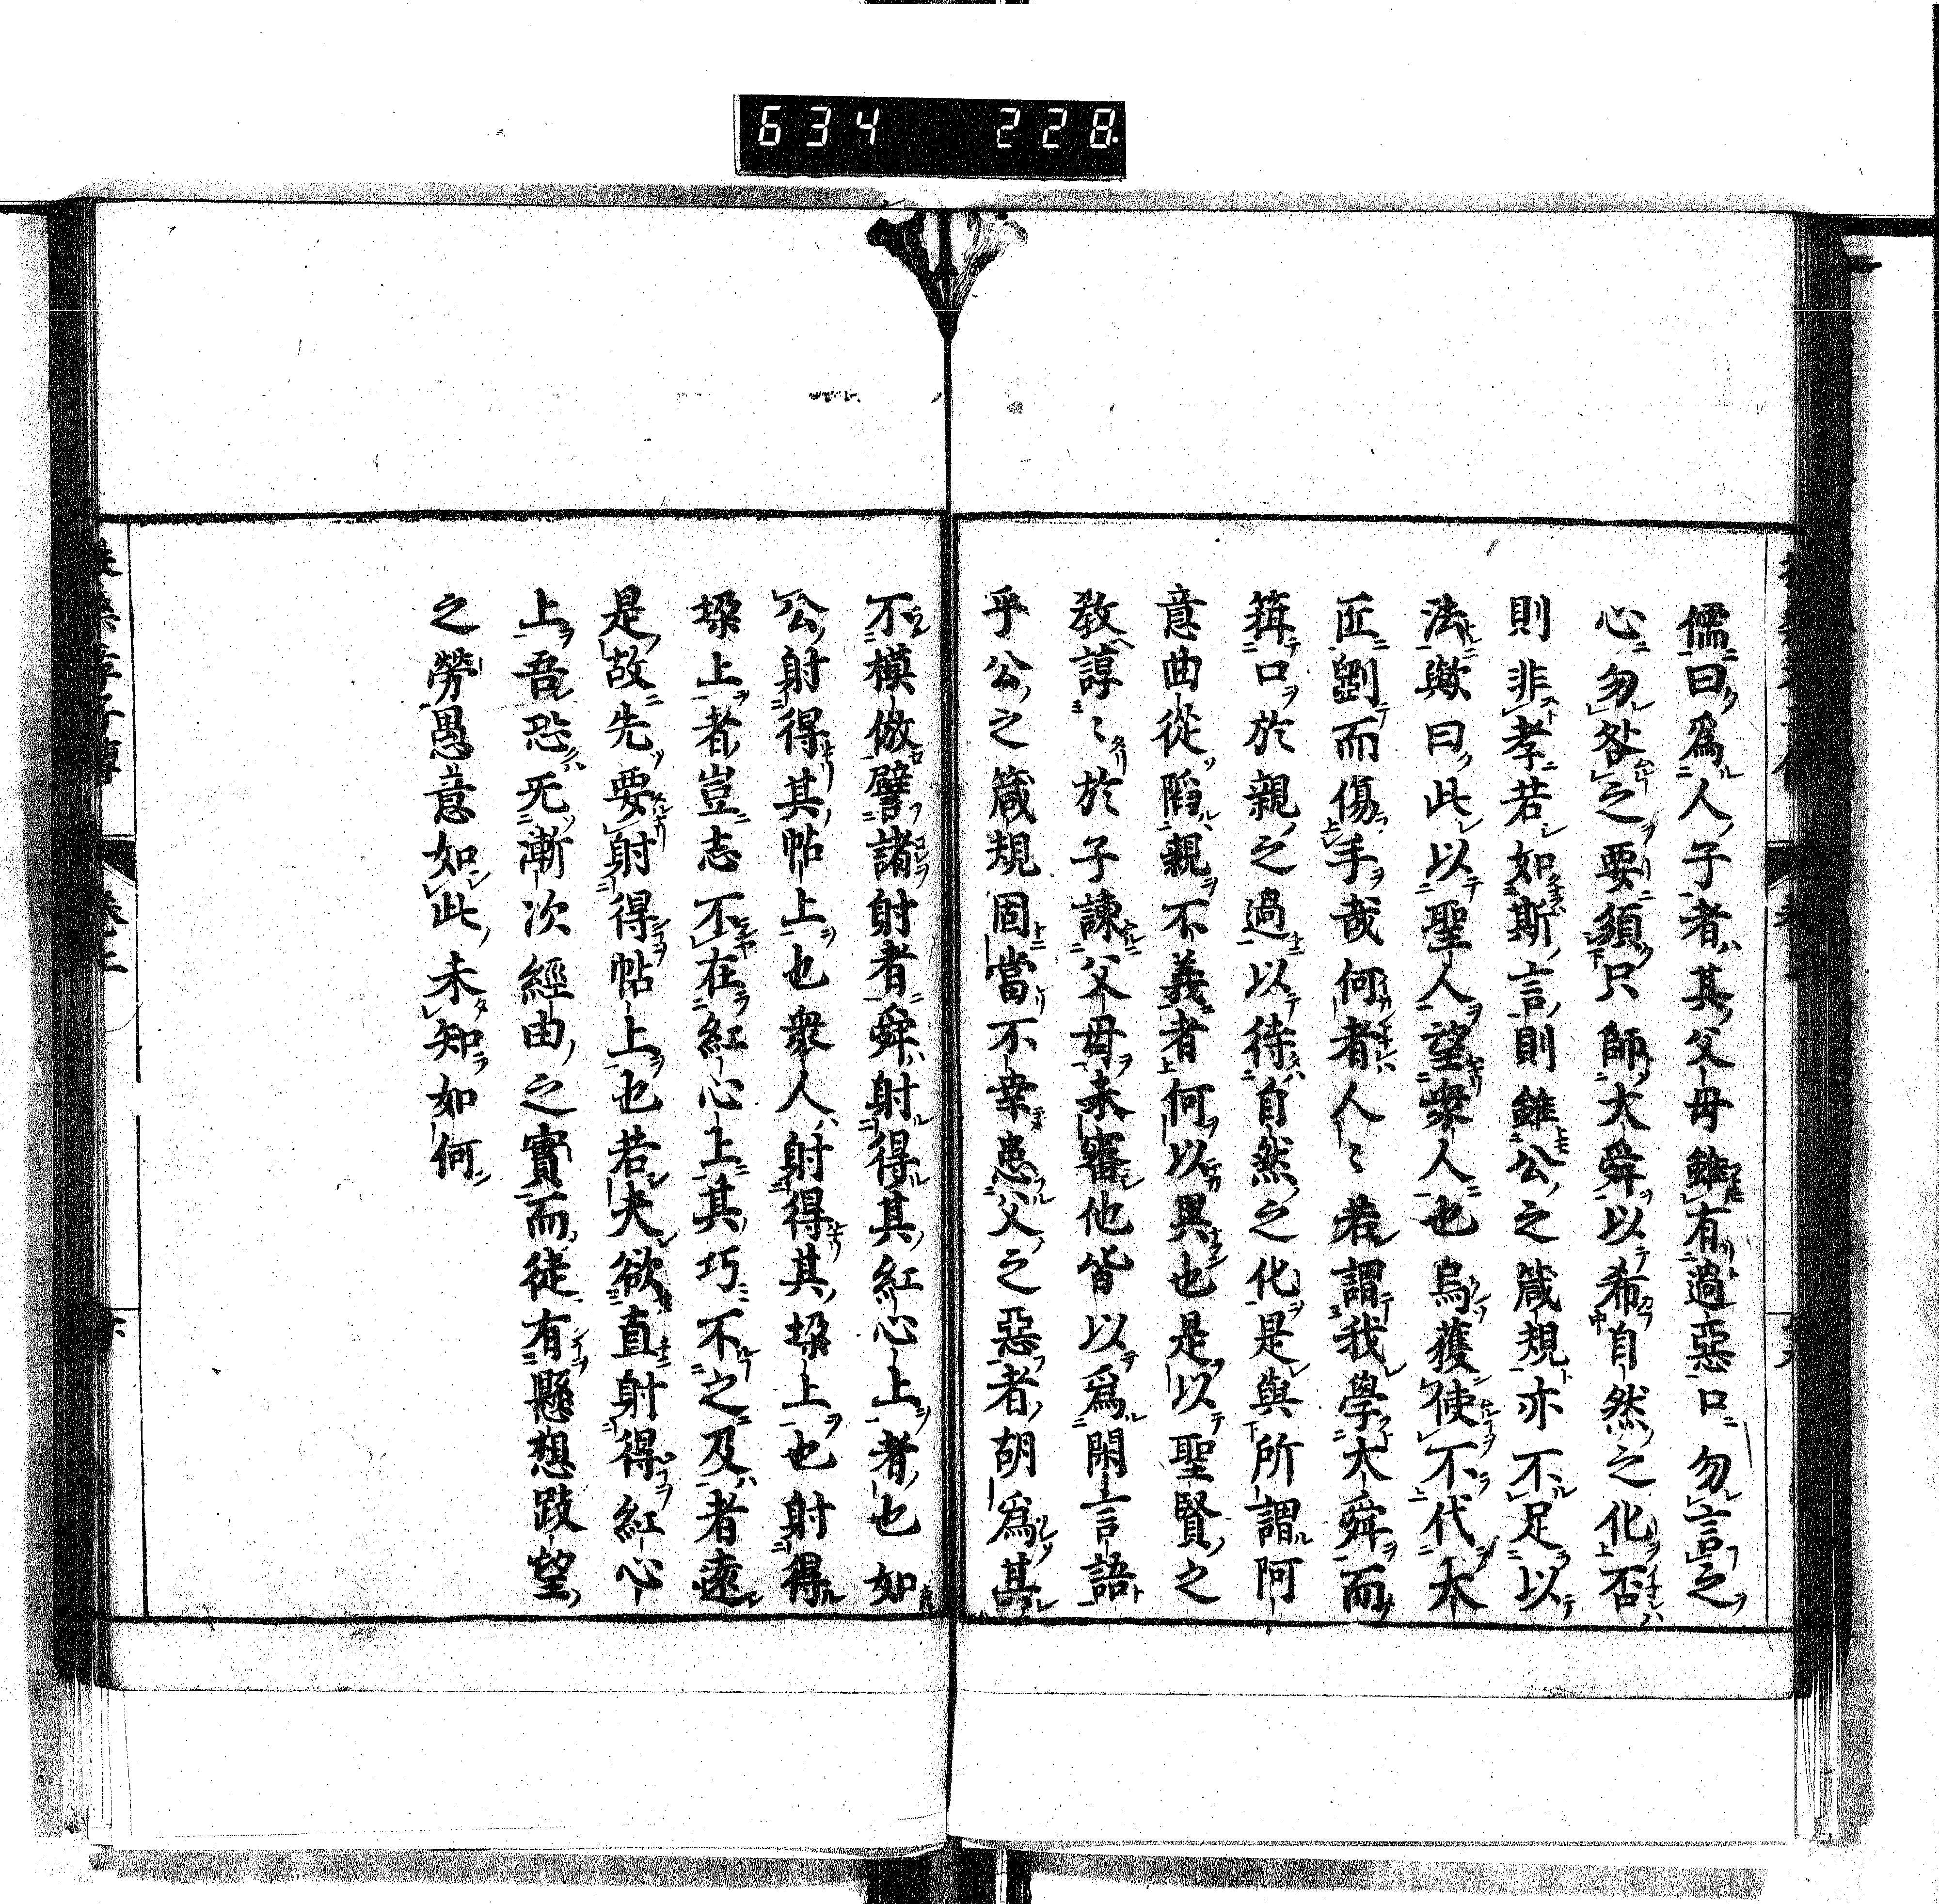 634 228
儒曰爲人子者其父母雖有過惡口勿言之
心勿咎之要須只師大舜以希自然之化否
則非孝若如斯言則雖公之箴規亦不足以
法歟曰此以聖人望衆人也烏獲使不代大
匠劉而傷手哉何者人〻若謂我學大舜而
箝口於親之過以待自然之化是與所謂阿
意曲從陷親不義者何以異也是以聖賢之
敎諄〻於子諫父母未審他皆以爲閑言語
乎公之箴規固當不幸患父之惡者胡爲其
不模倣譬諸射者舜射得其紅心上者也如
公射得其帖上也衆人射得其垜上也射得
垜上者豈志不在紅心上其巧不之及者遠
是故先要射得帖上也若夫欲直射得紅心
上吾恐死漸次經由之實而徒有懸想跂望
之勞愚意如此未知如何